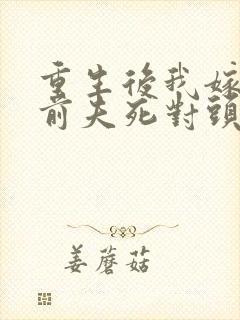 重生後我嫁
前夫死對頭
姜蘑菇